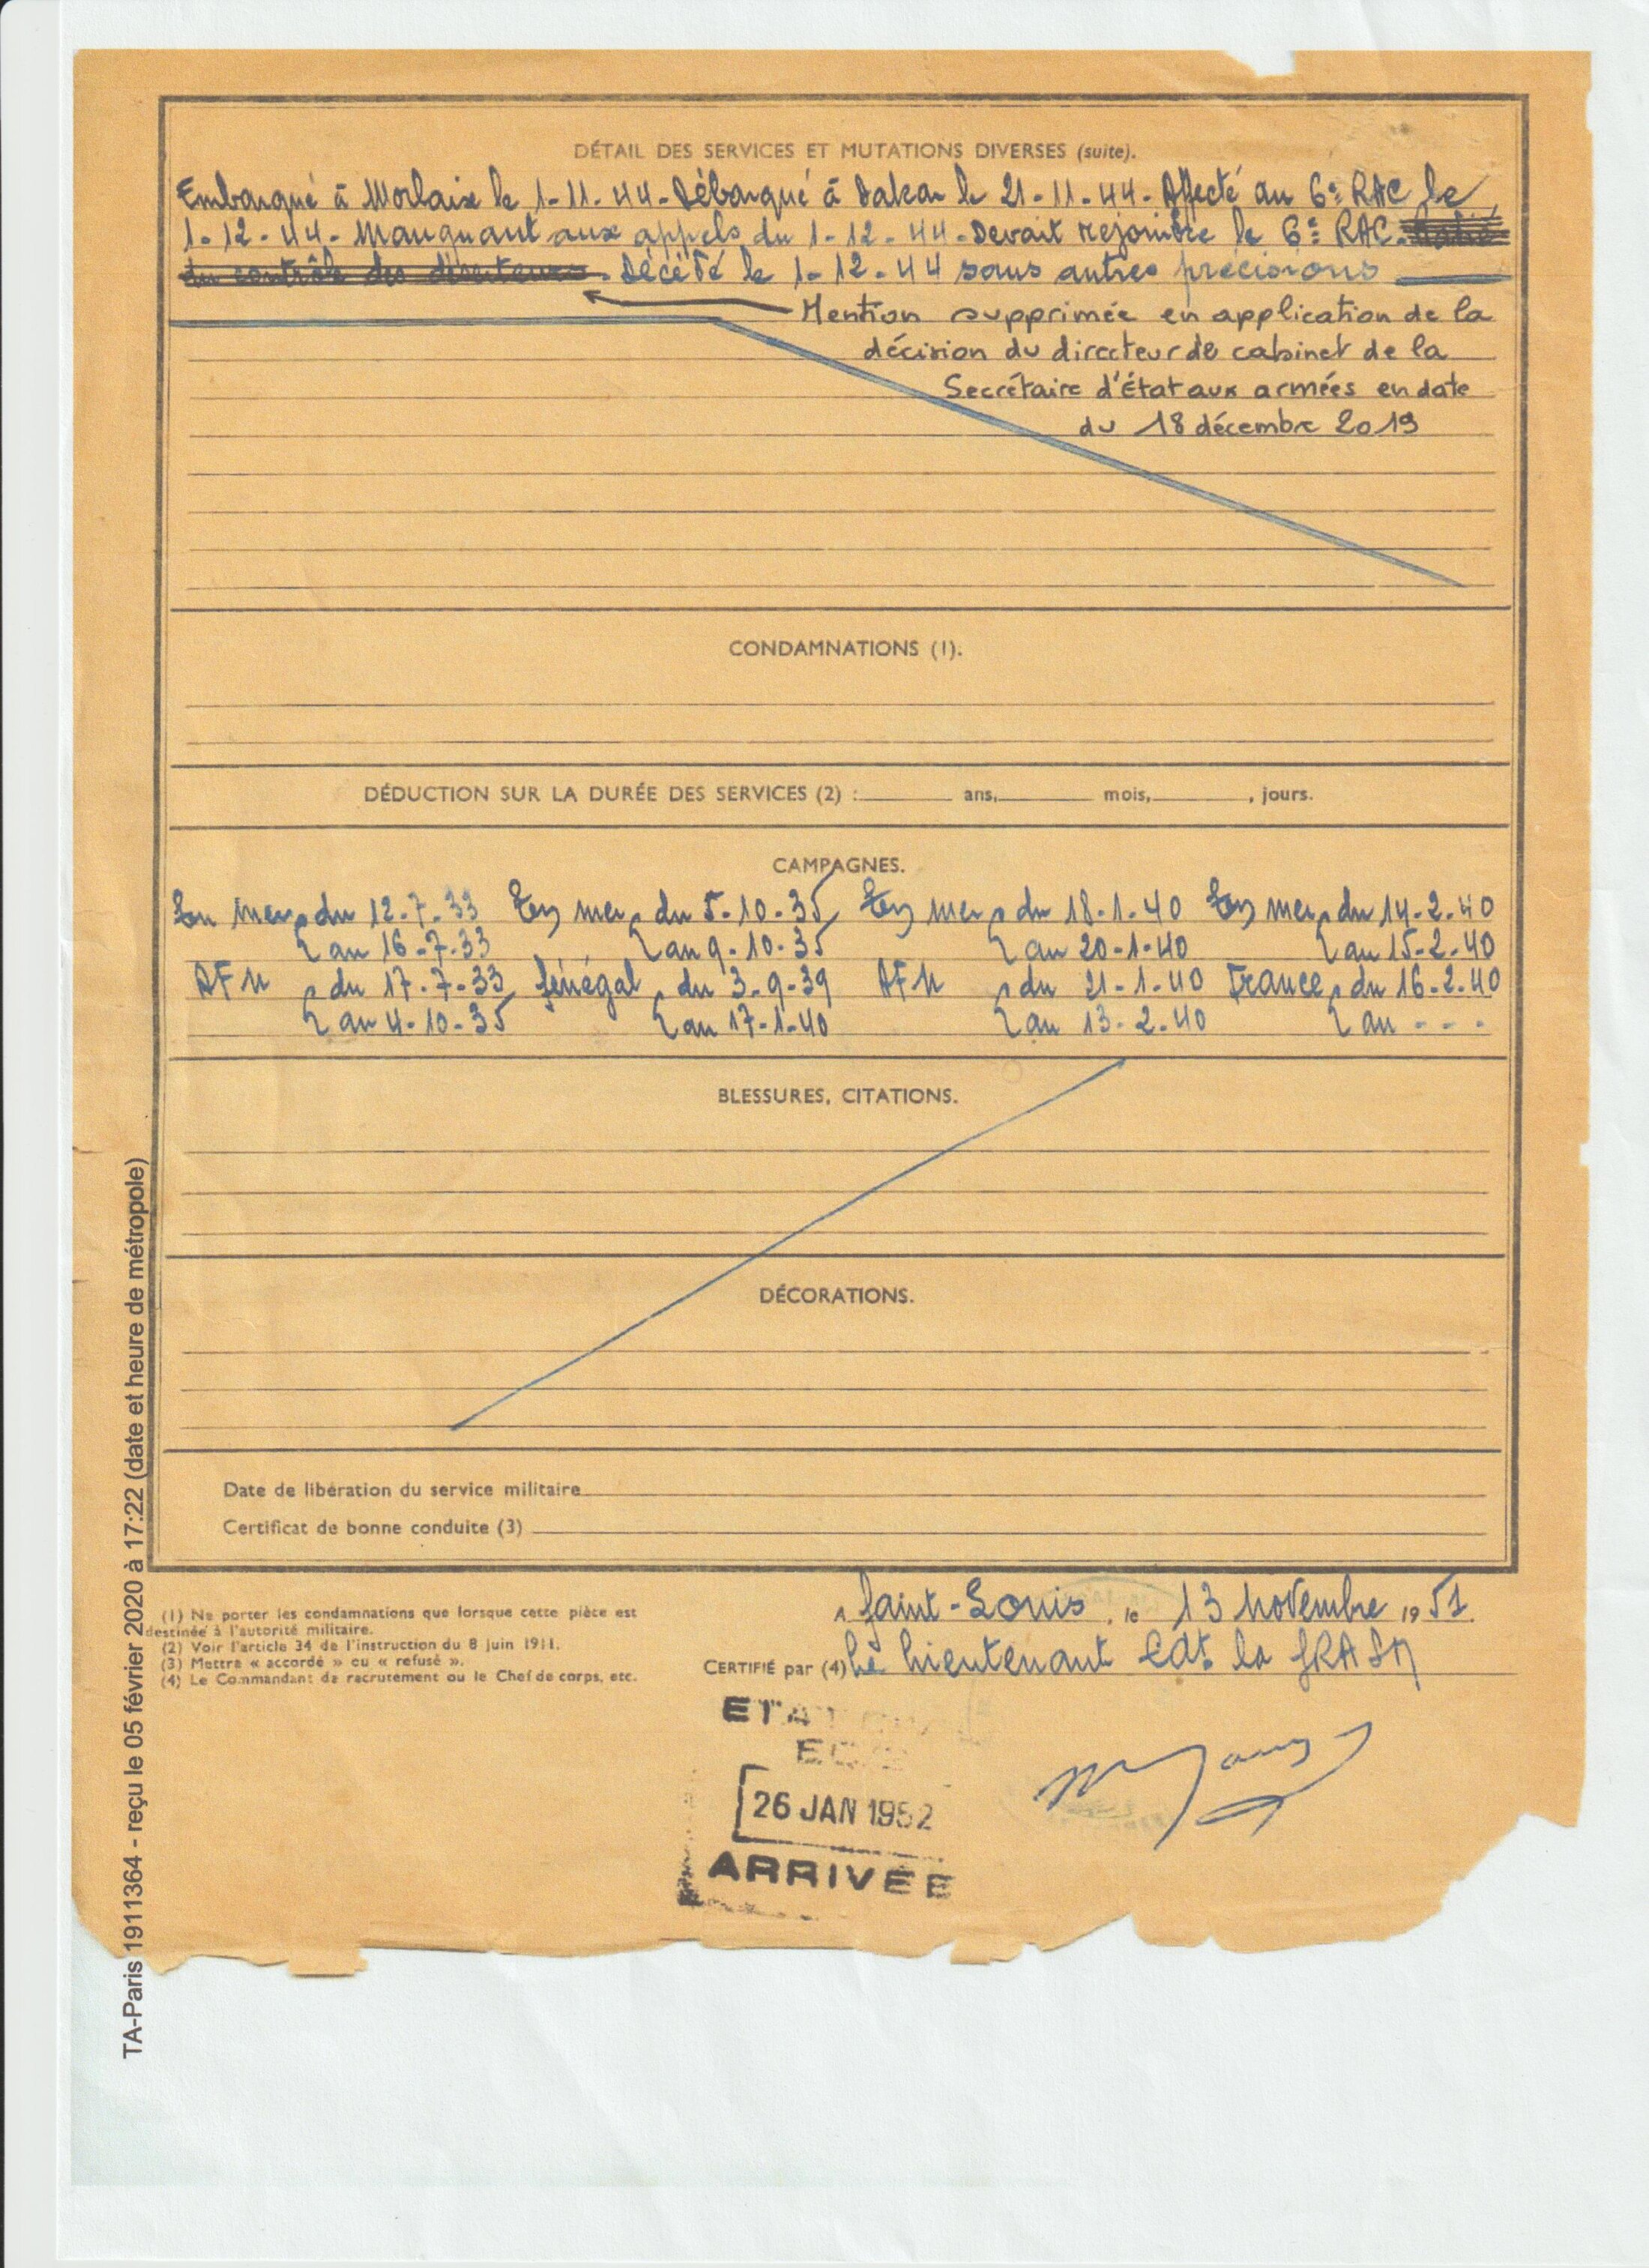 DÉTAIL DES SERVICES ET MUTATIONS DIVERSES (suite).
Embarqué à Morlaix le 1-11-44-Débarqué à Dakar le 21-11-44- Affecté au 6e RAC le
1-12-44- Manquant aux appels du 1-12-44-Devait rejoindre le 6e RAC.
du contrôle des déserteurs. Décédé le 1-12-44 sans autres précisions
Mention supprimée en application de la
décision du directeur de cabinet de la
Secrétaire d'État aux armées en date
du 18 décembre 2019
CONDAMNATIONS (1).
DÉDUCTION SUR LA DURÉE DES SERVICES (2) : ans, mois, , jours.
CAMPAGNES.
En mer du 12-7-33 En mer du 5-10-35 En mer du 18-1-40 En mer du 14-2-40
au 16-7-33 au 9-10-35 au 20-1-40 au 15-2-40
AFN du 17-7-33 Sénégal du 3-9-39 AFN du 21-1-40 France du 16-2-40
au 4-10-35 au 17-1-40 au 13-2-40 au - - -
BLESSURES, CITATIONS.
DÉCORATIONS.
Date de libération du service militaire
Certificat de bonne conduite (3)
A Saint-Louis, le 13 novembre 1951.
CERTIFIÉ par (4) Le Lieutenant Cdt la
(1) Ne porter les condamnations que lorsque cette pièce est
destinée à l'autorité militaire.
(2) Voir l'article 34 de l'instruction du 8 juin 1911.
(3) Mettre « accordé » ou « refusé ».
(4) Le Commandant de recrutement ou le Chef de corps, etc.
26 JAN 1952
ARRIVÉE
TA-Paris 1911364 - reçu le 05 février 2020 à 17:22 (date et heure de métropole)